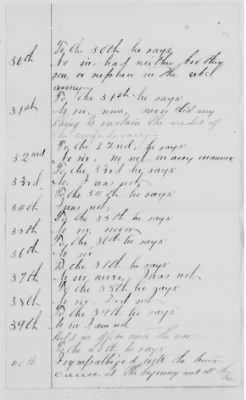 To the 30th he says
30th No sir. had neither brother
son, or nephew in the rebel
army
To the 31st he says
31st No sir, never, never did any
thing to sustain the credit of
the confederacy
To the 32nd, he says
32nd No sir. no not in any manner
To the 33rd he says
33rd No, I was not
To the 34th he says
34th I was not
To the 35th he says
35th No sir never
To the 36th he says
36th No sir
To the 37th he says
37th No sir, never, I was not
To the 38th he says
38th No sir. Did not
To the 39th he says
39th No sir I am not
held no office since the war
To the 40th he says
40th I sympathized with the Union
cause at the beginning and all the
time